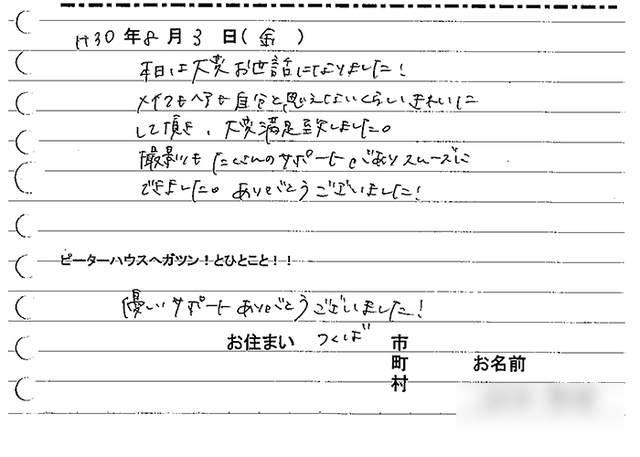 H30 年 8 月 3 日(金 )
本日は大変お世話になりました!
メイクもヘアも自分と思えないくらいきれいに
して頂き、大変満足致しました。
撮影もたくさんのサポートでありスムーズに
できました。ありがとうございました!
ピーターハウスへガツン!とひとこと!!
優しいサポートありがとうございました!
お住まい つくば 市
町 お名前
村